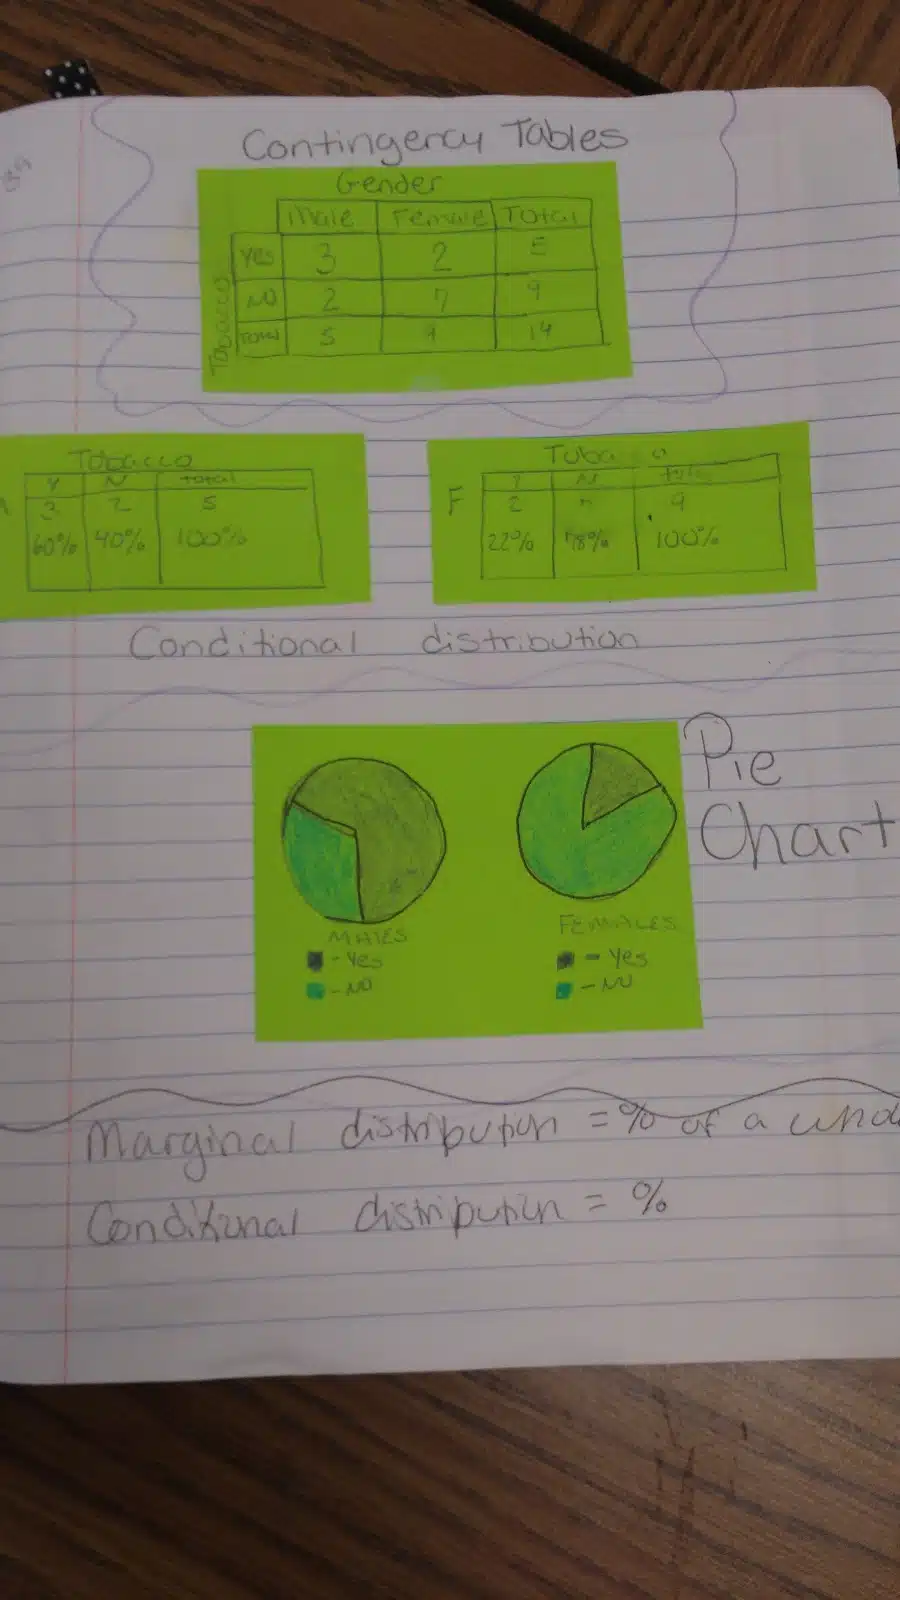 Contingency Tables
Gender
Male Female Total
Yes 3 2 5
NO 2 7 9
Total 5 9 14
Tobacco
Tobacco
Y N total
3 2 5
60% 40% 100%
F
2 9
22% 78% 100%
Conditional distribution
Pie
Chart
MALES
- Yes
- NO
FEMALES
- Yes
- NO
Marginal distribution = % of a
Conditional distribution = %